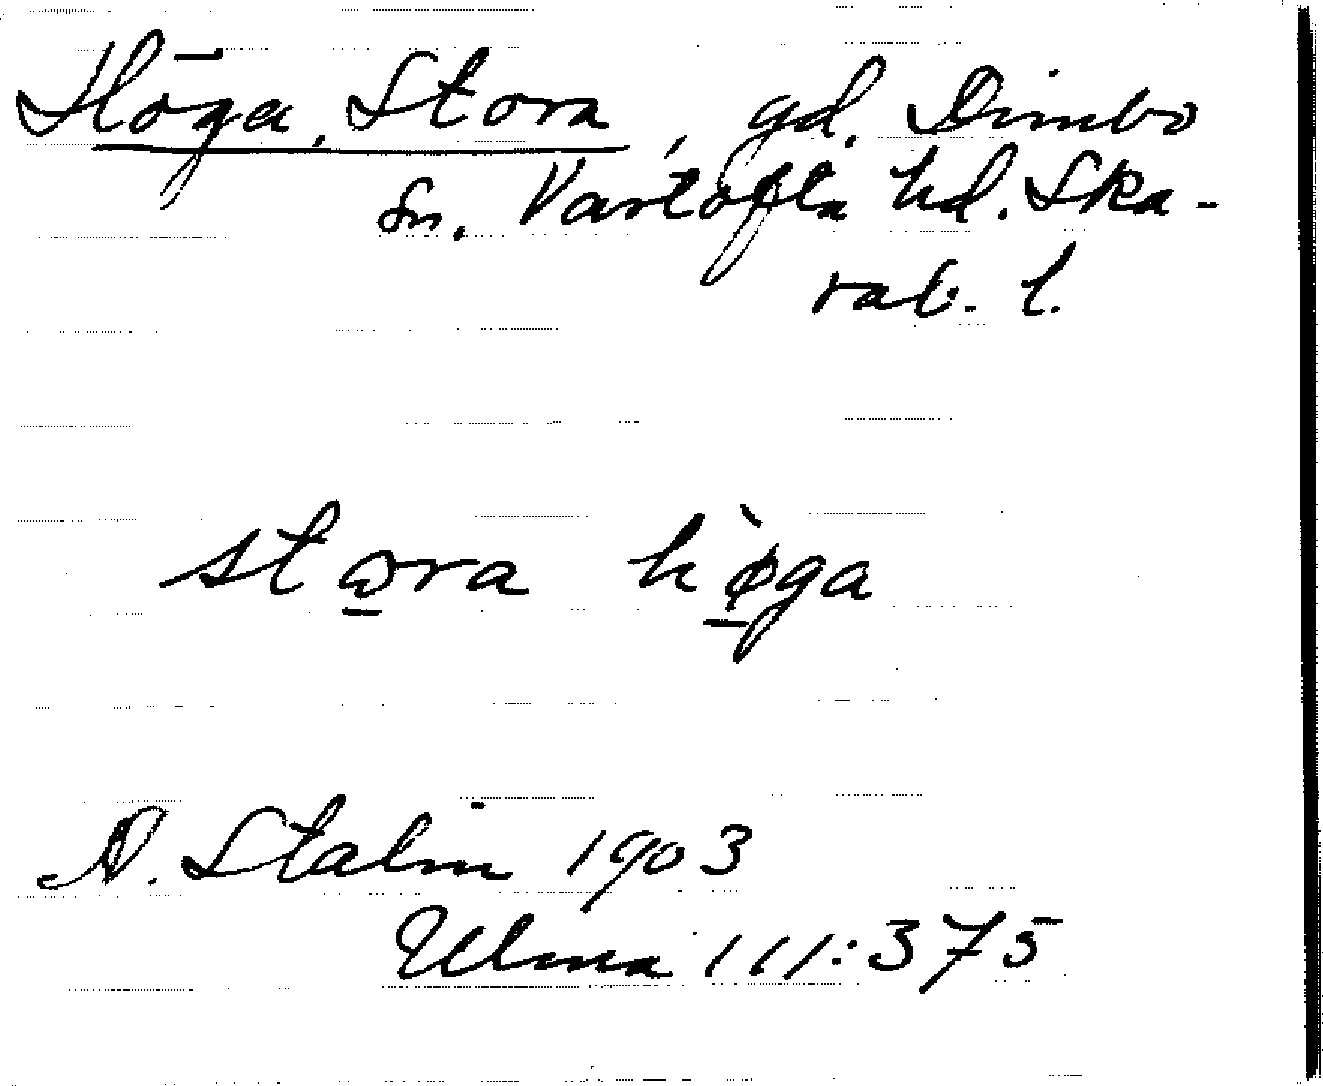 Höga, Stora, gd. Dimbo
sn. Vartofta hd. Ska-
rab. l.
stora hø̀ga
A. Stalin 1903
Ulma 111:375